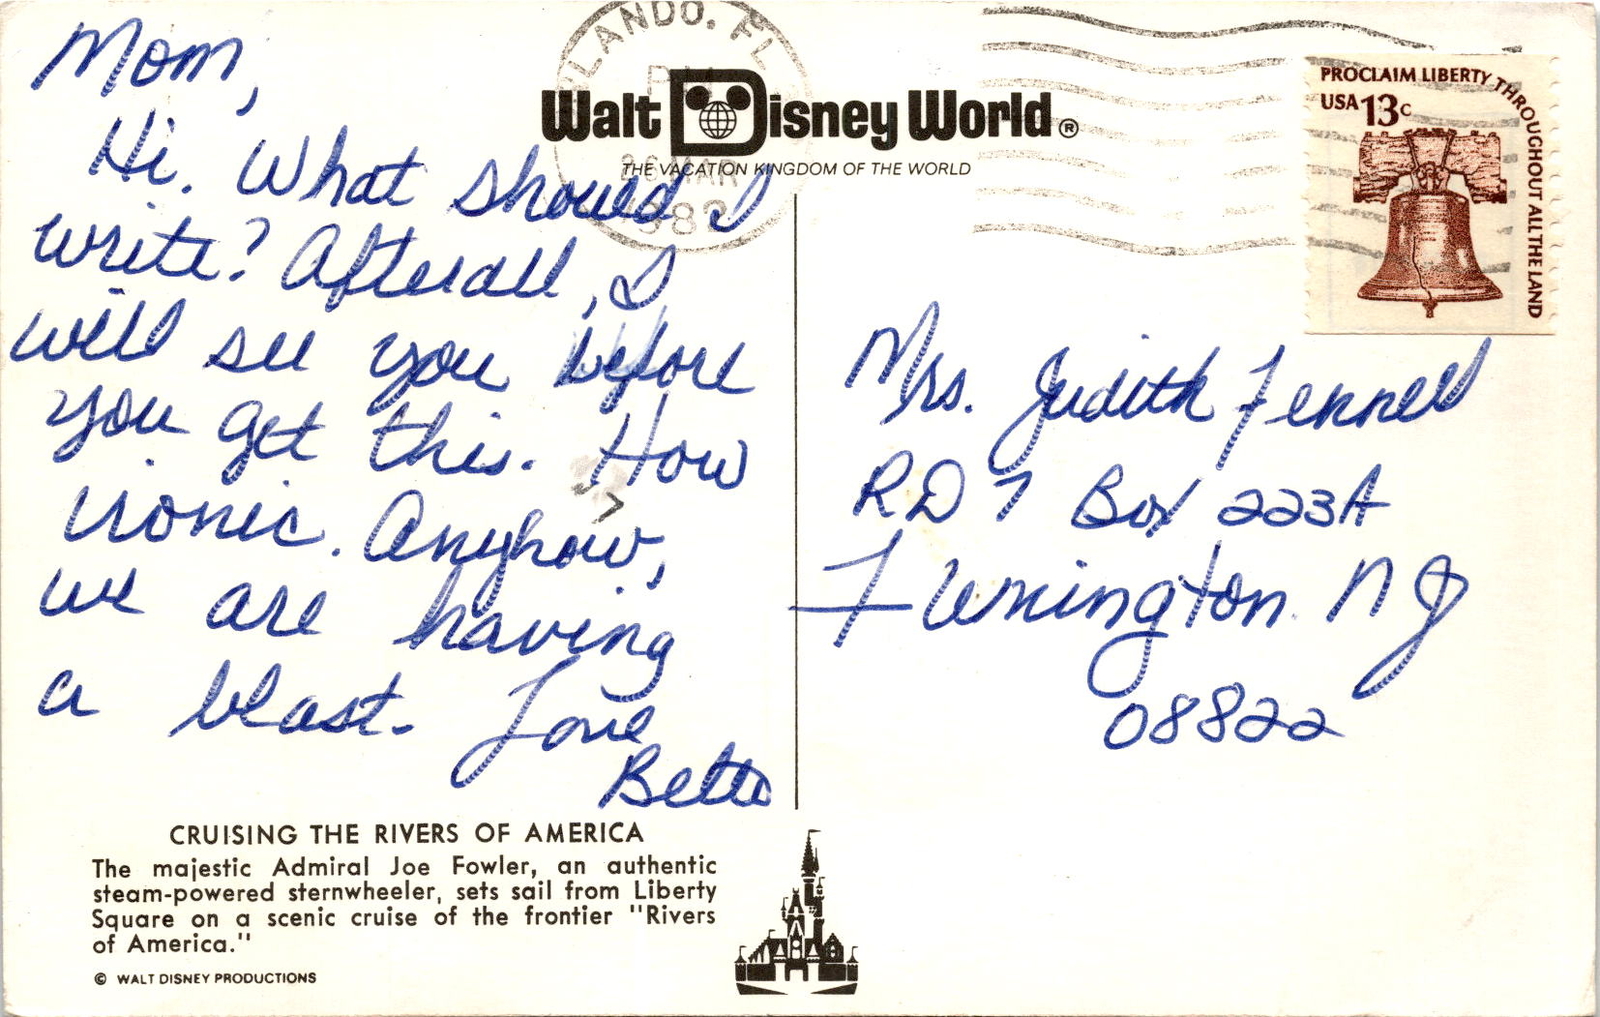 Mom,
Hi. What should I
write? Afterall, I
will see you before
you get this. How
ironic. Anyhow,
we are having
a blast. Love
CRUISING THE RIVERS OF AMERICA
The majestic Admiral Joe Fowler, an authentic
steam-powered sternwheeler, sets sail from Liberty
Square on a scenic cruise of the frontier "Rivers
of America."
© WALT DISNEY PRODUCTIONS
Walt Disney World®
THE VACATION KINGDOM OF THE WORLD
LANDO, FL
PM
26 MAR
1982
PROCLAIM LIBERTY THROUGHOUT ALL THE LAND
USA 13c
Mrs. Judith Fennell
RD 7 Box 223A
Flemington NJ
08822